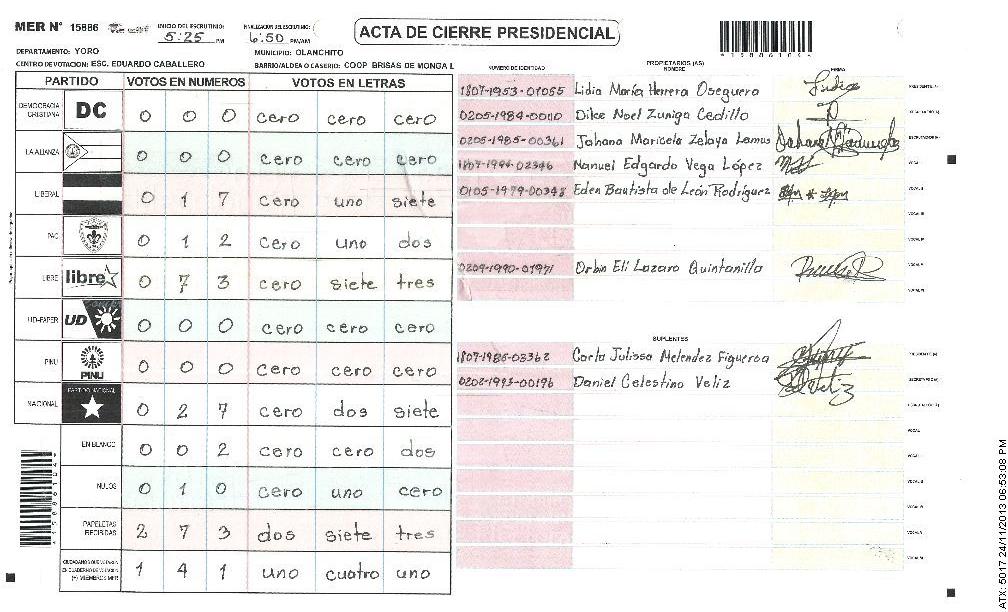 MER Nº 15886 INICIO DEL ESCRUTINIO: 5:25 PM FINALIZACION DEL ESCRUTINIO: 6:50 PM/AM
ACTA DE CIERRE PRESIDENCIAL
DEPARTAMENTO: YORO MUNICIPIO: OLANCHITO
CENTRO DE VOTACION: ESC. EDUARDO CABALLERO BARRIO/ALDEA O CASERIO: COOP BRISAS DE MONGA L
PARTIDO VOTOS EN NUMEROS VOTOS EN LETRAS
DEMOCRACIA CRISTIANA DC 0 0 0 cero cero cero
LA ALIANZA 0 0 0 cero cero cero
LIBERAL 0 1 7 cero uno siete
PAC 0 1 2 cero uno dos
LIBRE libre 0 7 3 cero siete tres
UD-FAPER UD 0 0 0 cero cero cero
PINU PINU 0 0 0 cero cero cero
NACIONAL PARTIDO NACIONAL 0 2 7 cero dos siete
EN BLANCO 0 0 2 cero cero dos
NULOS 0 1 0 cero uno cero
PAPELETAS RECIBIDAS 2 7 3 dos siete tres
CIUDADANOS QUE VOTARON EN CUADERNO DE VOTACION (+) MIEMBROS MER 1 4 1 uno cuatro uno
NUMERO DE IDENTIDAD PROPIETARIOS (AS) NOMBRE FIRMAS
1807-1953-01055 Lidia María Herrera Oseguera PRESIDENTE (A)
0205-1984-0010 Dilce Noel Zuniga Cedillo
0205-1985-00361 Johana Maricela Zelaya Lemus ESCRUTADOR (A)
1807-1994-02346 Manuel Edgardo Vega López
0105-1979-00348 Eden Bautista de León Rodríguez VOCAL II
VOCAL III
VOCAL IV
0209-1990-01971 Orbin Eli Lazaro Quintanilla VOCAL V
VOCAL VI
SUPLENTES
1807-1985-03362 Carla Julissa Melendez Figueroa PRESIDENTE (A)
0202-1993-00196 Daniel Celestino Veliz SECRETARIO (A)
ESCRUTADOR (A)
VOCAL I
VOCAL II
VOCAL III
VOCAL IV
VOCAL V
VOCAL VI
ATX: 5017 24/11/2013 06:53:08 PM